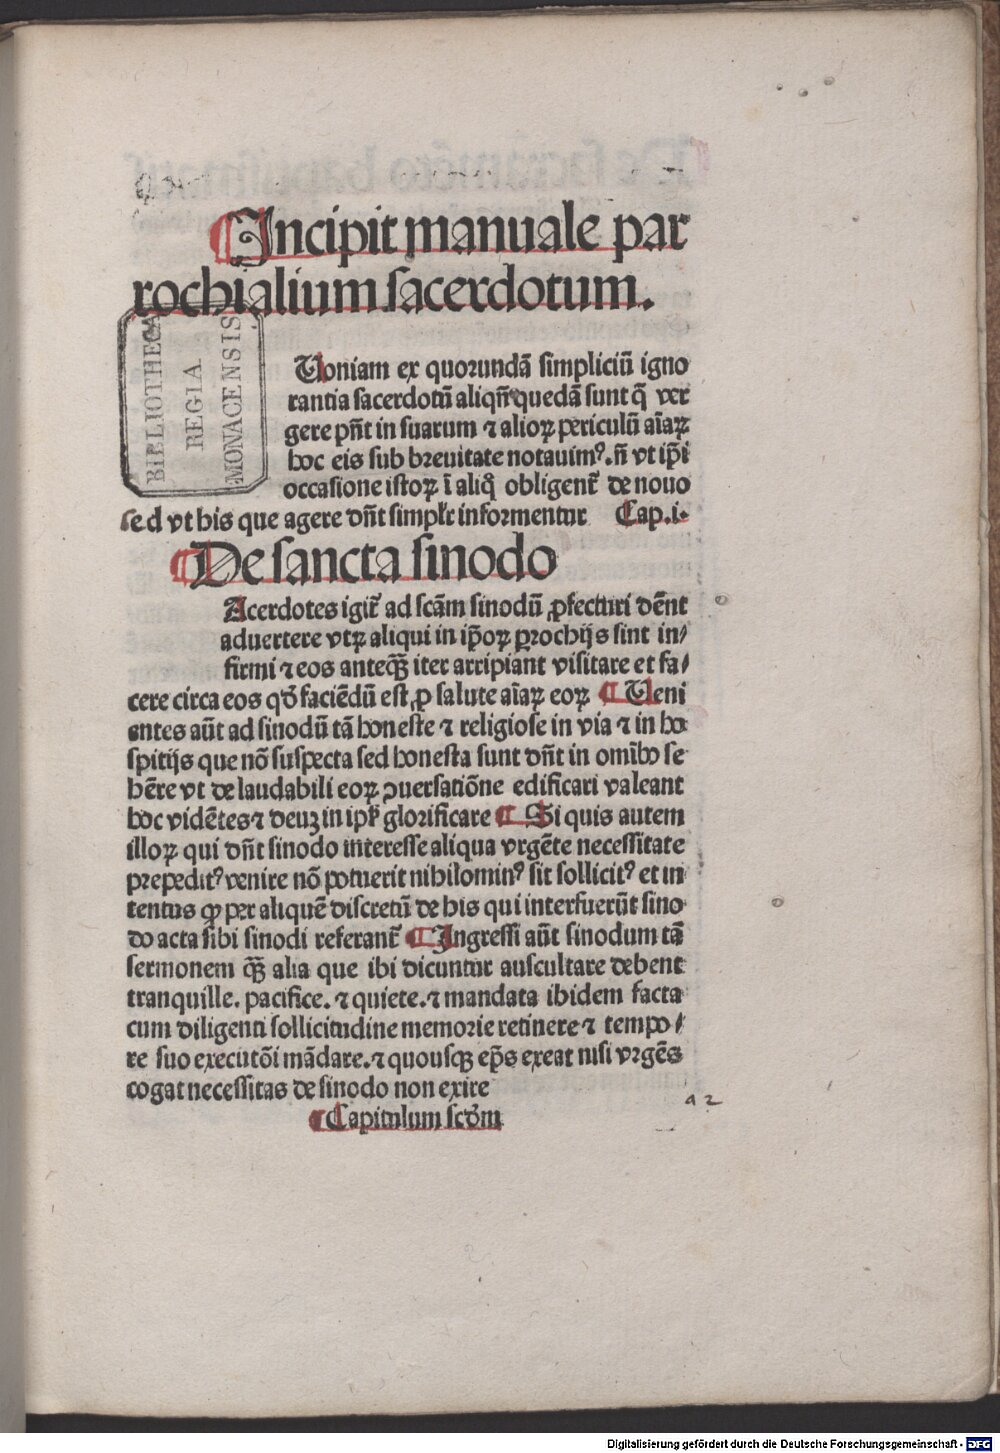 ¶Incipit manuale par
rochialium sacerdotum.
BIBLIOTHECA
REGIA
MONACENSIS
Uoniam ex quorundā simpliciū igno
rantia sacerdotū aliqn̄ quedā sunt q̄ ver
gere pn̄t in suarum ⁊ alioꝝ periculū aīaꝝ
hoc eis sub breuitate notauimꝰ. n̄ vt ip̄i
occasione istoꝝ ī aliq̄ obligent᷑ de nouo
sed vt his que agere dn̄t simpl̓r informentur Cap. i.
¶De sancta sinodo
Acerdotes igit᷑ ad scām sinodū ꝓfecturi dēnt
aduertere vtꝝ aliqui in ip̄oꝝ ꝑrochijs sint in/
firmi ⁊ eos anteqꝫ̄ iter arripiant visitare et fa/
cere circa eos qd̄ faciēdū est ꝓ salute aīaꝝ eoꝝ ¶Ueni
entes aūt ad sinodū tā honeste ⁊ religiose in via ⁊ in ho
spitijs que nō suspecta sed honesta sunt dn̄t in omībo se
hēre vt de laudabili eoꝝ ꝯuersatiōne edificari valeant
hoc vidētes ⁊ deuꝫ in ip̄is glorificare ¶Si quis autem
illoꝝ qui dn̄t sinodo interesse aliqua vrgēte necessitate
prepeditꝰ venire nō potuerit nihilominꝰ sit sollicitꝰ et in
tentus ꝙ per aliquē discretū de his qui interfuerūt sino
do acta sibi sinodi referant᷑ ¶Ingressi aūt sinodum tā
sermonem qꝫ̄ alia que ibi dicuntur auscultare debent
tranquille. pacifice. ⁊ quiete. ⁊ mandata ibidem facta
cum diligenti sollicitudine memorie retinere ⁊ tempo/
re suo executōi mādare. ⁊ quousqꝫ ep̄s exeat nisi vrgēs
cogat necessitas de sinodo non exire
a 2
¶Capitulum scd̄m
Digitalisierung gefördert durch die Deutsche Forschungsgemeinschaft - DFG